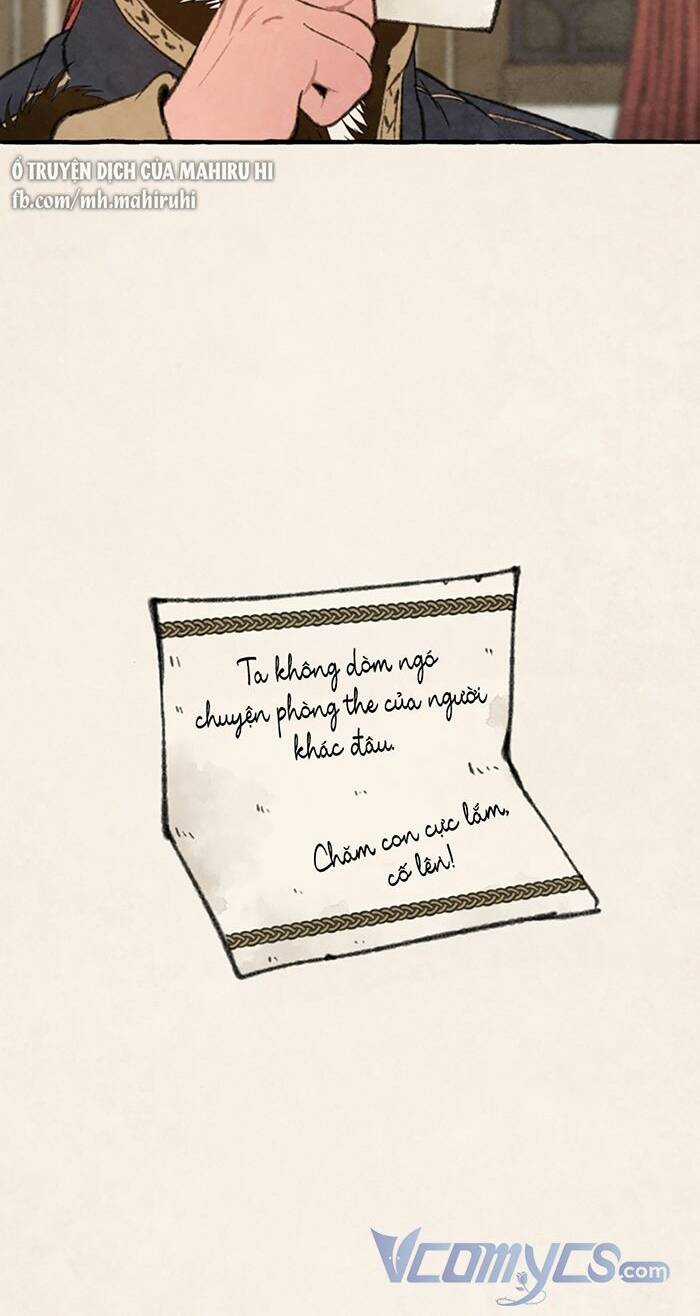 Ổ TRUYỆN DỊCH CỦA MAHIRU HI
fb.com/mh.mahiruhi
Ta không dòm ngó
chuyện phòng the của người
khác đâu.
Chăm con cực lắm,
cố lên!
VCOMYCS.com